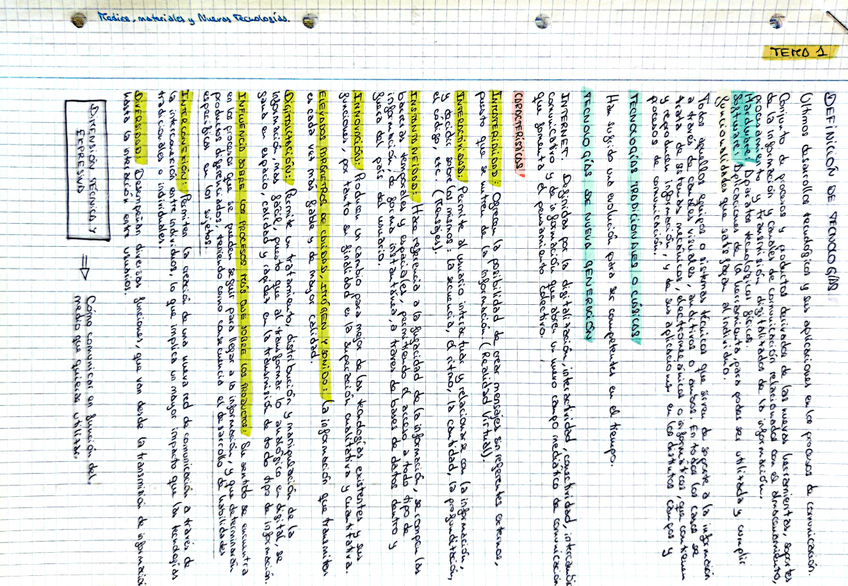 Medios, materiales y Nuevas Tecnologías.
TEMA 1
DEFINICIÓN DE TECNOLOGÍAS
Últimos desarrollos tecnológicos y sus aplicaciones en los procesos de comunicación
Conjunto de procesos y productos derivados de las nuevas herramientas, soportes
de la información y canales de comunicación relacionados con el almacenamiento,
procesamiento y transmisión digitalizados de la información.
Hardware: Aparatos tecnológicos físicos.
Software: Aplicaciones de la herramienta, para poder ser utilizada y cumplir
funcionalidades que satisfaga al individuo.
TECNOLOGÍAS TRADICIONALES O CLÁSICAS
Todos aquellos equipos o sistemas técnicos que sirven de soporte a la información
a través de canales visuales, auditivos o ambos. En todos los casos se
trata de sistemas mecánicos, electromecánicos o informáticos, que contienen
y reproducen información, y de sus aplicaciones en los distintos campos y
procesos de comunicación.
Han surgido una evolución para ser competentes en el tiempo.
TECNOLOGÍAS DE NUEVA GENERACIÓN
INTERNET: Definidas por la digitalización, interactividad, conectividad, intercambio
comunicativo y de información que abre un nuevo campo mediático de comunicación
que fomenta el pensamiento colectivo.
CARACTERÍSTICAS
INMATERIALIDAD: Ofrecen la posibilidad de crear mensajes sin referentes externos,
puesto que se nutren de la información (Realidad Virtual).
INTERACTIVIDAD: Permite al usuario interactuar y relacionarse con la información,
y decidir sobre los mismos: la secuencia, el ritmo, la cantidad, la profundización,
el código, etc. (Mensajes).
INSTANTANEIDAD: Hace referencia a la fugacidad de la información, se rompen las
barreras temporales y espaciales, permitiendo el acceso a todo tipo de
información de forma instantánea, a través de bases de datos dentro y
fuera del país del usuario.
INNOVACIÓN: Producen un cambio para mejor de las tecnologías existentes y sus
funciones, por tanto su finalidad es la superación cualitativa y cuantitativa.
ELEVADOS PARÁMETROS DE CALIDAD, IMAGEN Y SONIDO: La información que transmiten
es cada vez más fiable y de mayor calidad.
DIGITALIZACIÓN: Permite un tratamiento, distribución y manipulación de la
información más fácil, puesto que al transformar lo analógico en digital, se
gana en espacio, calidad y rapidez en la transmisión de todo tipo de información.
INFLUENCIA SOBRE LOS PROCESOS MÁS QUE SOBRE LOS PRODUCTOS: Su sentido se encuentra
en los procesos que se pueden seguir para llegar a la información, y que determinarán
productos diferenciados, teniendo como consecuencia el desarrollo de habilidades
específicas en los sujetos.
INTERCONEXIÓN: Permiten la creación de una nueva red de comunicación a través de
la interconexión entre individuos, lo que implica un mayor impacto que las tecnologías
tradicionales o individuales.
DIVERSIDAD: Desempeñan diversas funciones, que van desde la transmisión de información
hasta la interacción entre usuarios.
DIMENSIÓN TÉCNICA Y
EXPRESIVA
⇒ Cómo comunicar en función del
medio que quieras utilizar.